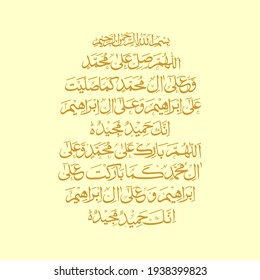 بِسْمِ اللهِ الرَّحْمٰنِ الرَّحِيْمِ
اَللّٰهُمَّ صَلِّ عَلٰى مُحَمَّدٍ
وَّعَلٰى اٰلِ مُحَمَّدٍ كَمَا صَلَّيْتَ
عَلٰى اِبْرَاهِيْمَ وَعَلٰى اٰلِ اِبْرَاهِيْمَ
اِنَّكَ حَمِيْدٌ مَّجِيْدٌ
اَللّٰهُمَّ بَارِكْ عَلٰى مُحَمَّدٍ وَّعَلٰى
اٰلِ مُحَمَّدٍ كَمَا بَارَكْتَ عَلٰى
اِبْرَاهِيْمَ وَعَلٰى اٰلِ اِبْرَاهِيْمَ
اِنَّكَ حَمِيْدٌ مَّجِيْدٌ
shutterstock.com · 1938399823